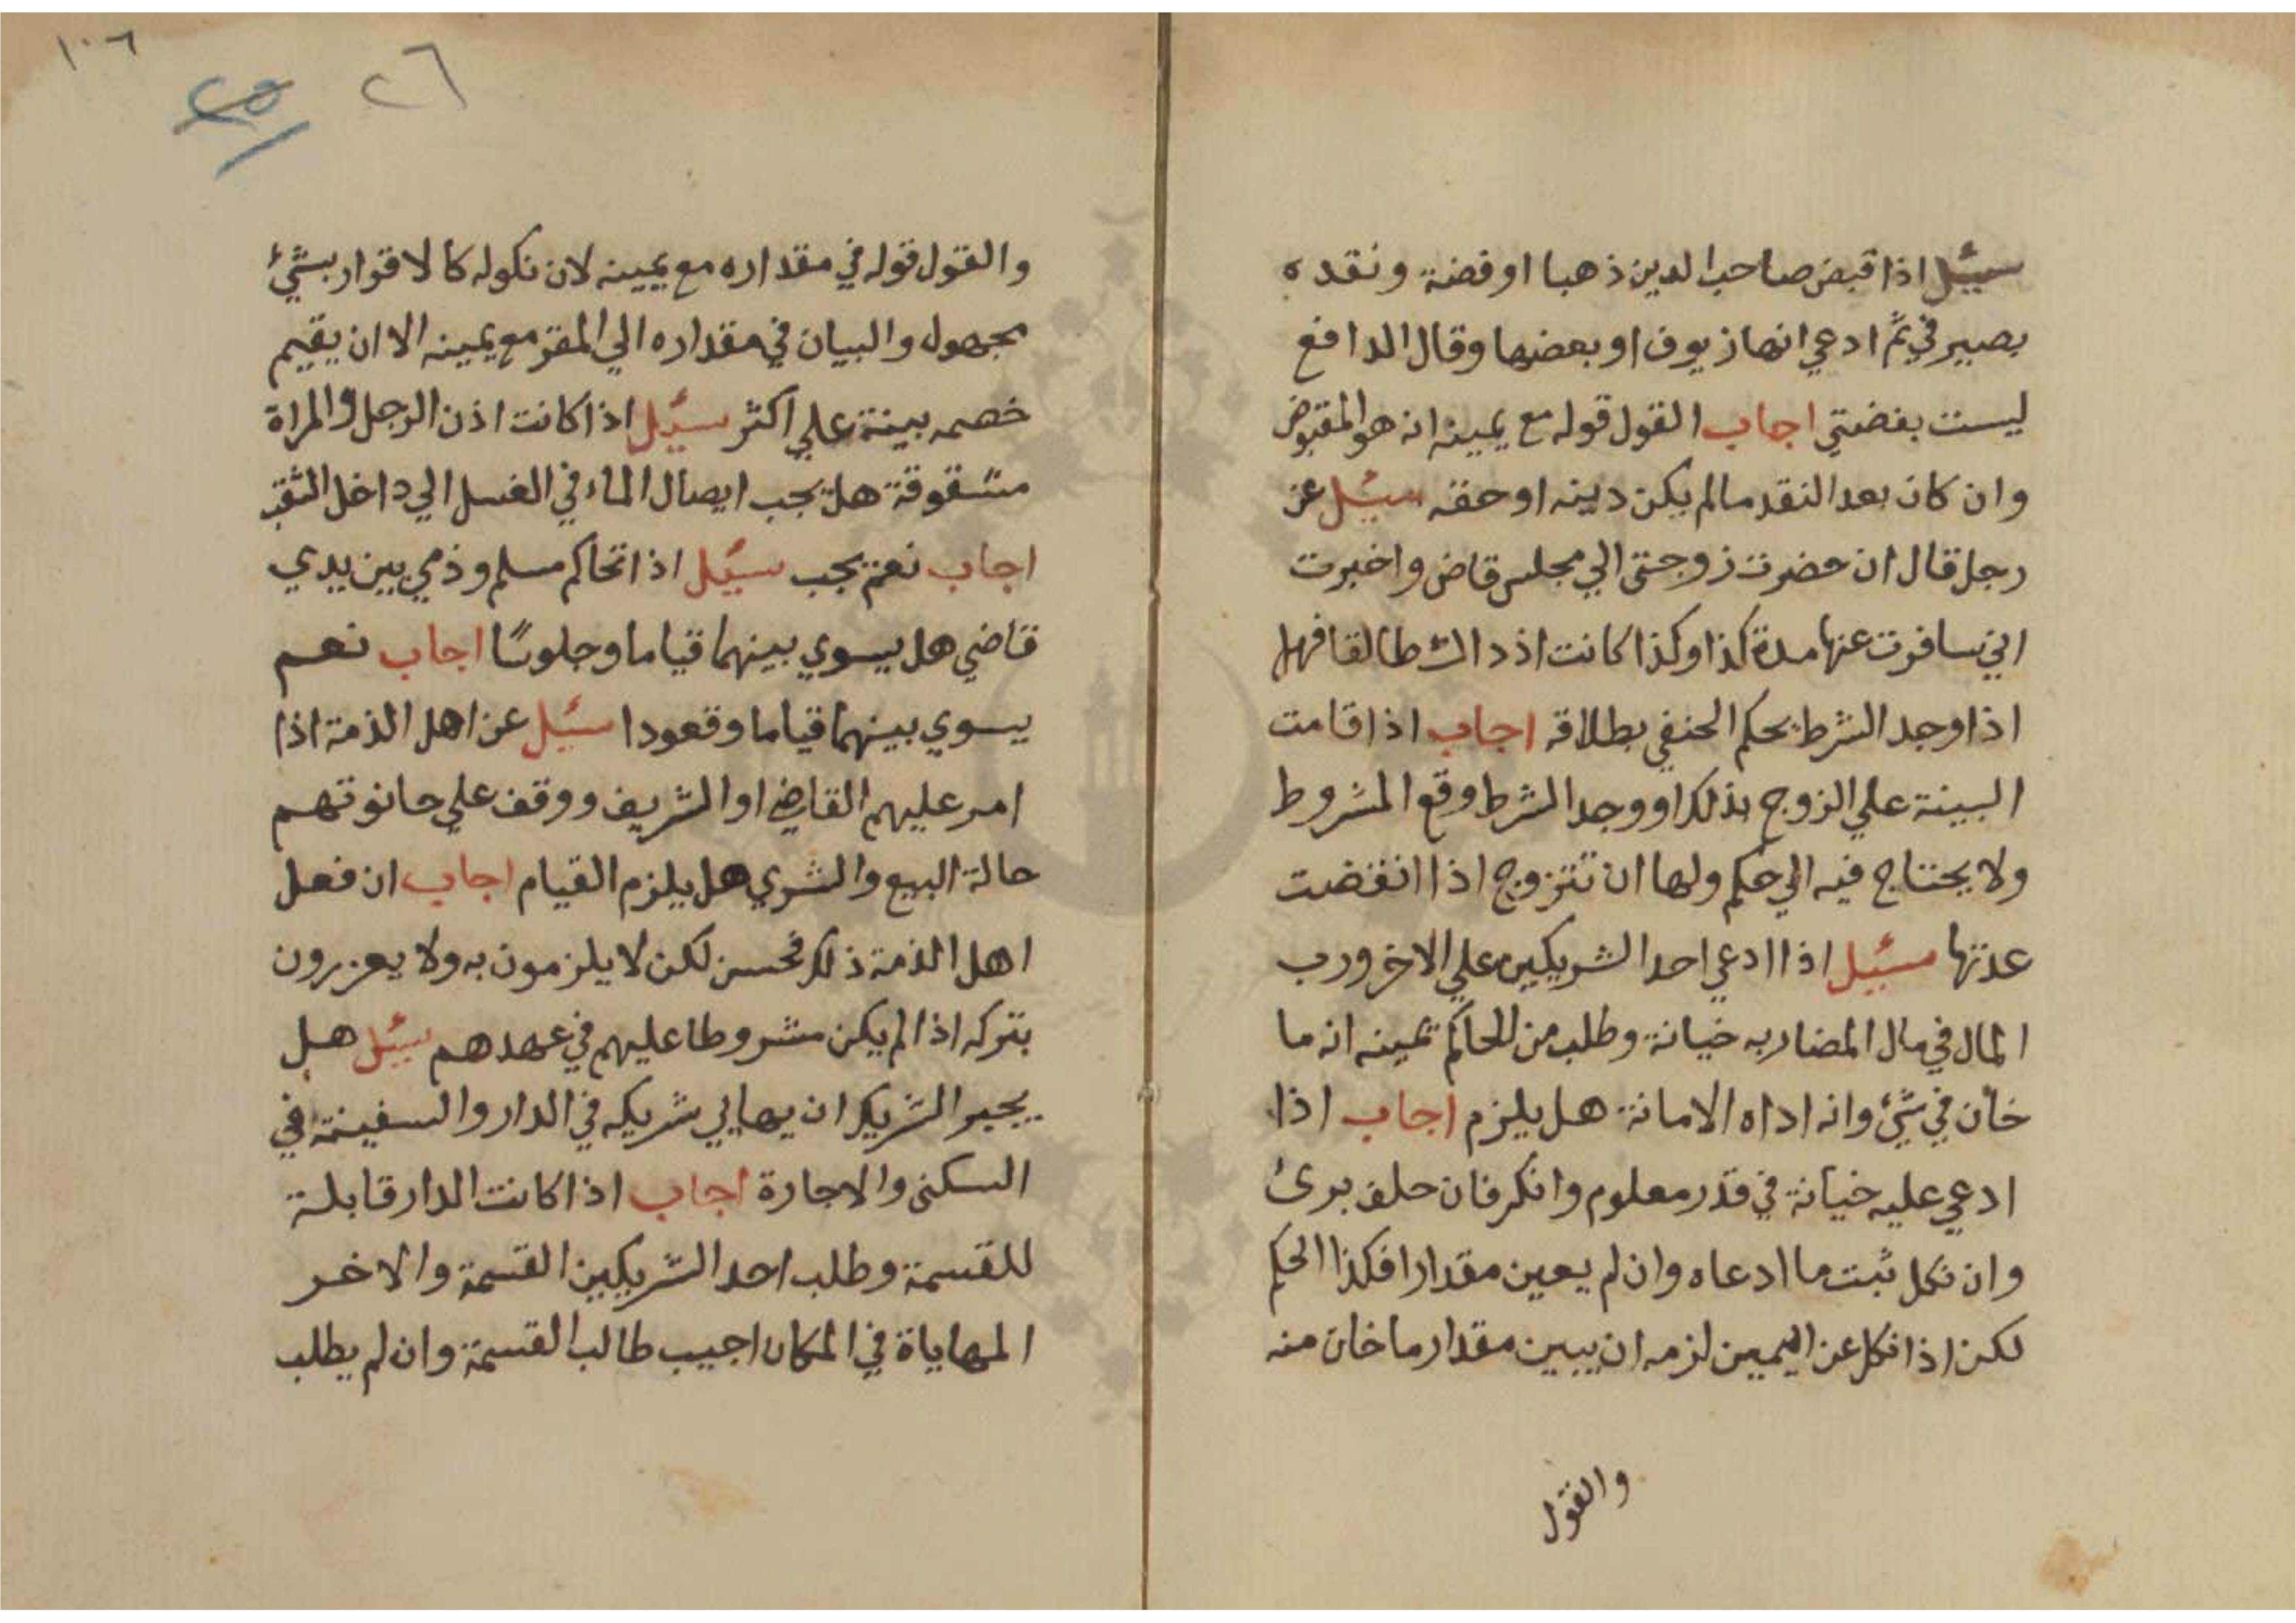 سيئل اذا قبض صاحب الدين ذهبا او فضة ونقده
بصيرفي ثم ادعي انها زيوف او بعضها وقال الدافع
ليست بفضتي اجاب القول قوله مع يمينه انه هو المقبوض
وان كان بعد النقد مالم يكن دينه او حقه سيئل عن
رجل قال ان حضرت زوجتي الي مجلس قاض واخبرت
اني سافرت عنها مدة كذا وكذا كانت اذ ذاك طالقا فهل
اذا وجد الشرط يحكم الحنفي بطلاقه اجاب اذا اقامت
البينة علي الزوج بذلك او وجد الشرط وقع المشروط
ولا يحتاج فيه الي حكم ولها ان تتزوج اذا انقضت
عدتها سيئل اذا ادعي احد الشريكين علي الاخر ورب
المال في مال المضاربه خيانة وطلب من الحاكم يمينه انه ما
خان في شيء وانه اداه الامانة هل يلزم اجاب اذا
ادعي عليه خيانة في قدر معلوم وانكر فان حلف برئ
وان نكل ثبت ما ادعاه وان لم يعين مقدارا فكذا الحكم
لكن اذا نكل عن اليمين لزمه ان يبين مقدار ما خان منه
والقول
١٠٦
٢٦
٢٥
والقول قوله في مقداره مع يمينه لان نكوله كالاقرار بشيء
مجهول والبيان في مقداره الي المقر مع يمينه الا ان يقيم
خصمه بينة علي اكثر سيئل اذا كانت اذن الرجل والمراة
مشقوقة هل يجب ايصال الماء في الغسل الي داخل الثقب
اجاب نعم يجب سيئل اذا تحاكم مسلم وذمي بين يدي
قاضي هل يسوي بينهما قياما وجلوسا اجاب نعم
يسوي بينهما قياما وقعودا سيئل عن اهل الذمة اذا
امر عليهم القاضي او الشريف ووقف علي حانوتهم
حالة البيع والشري هل يلزم القيام اجاب ان فعل
اهل الذمة ذلك فحسن لكن لا يلزمون به ولا يعزرون
بتركه اذا لم يكن مشروطا عليهم في عهدهم سيئل هل
يجبر الشريك ان يهايي شريكه في الدار والسفينة في
السكني والاجارة اجاب اذا كانت الدار قابلة
للقسمة وطلب احد الشريكين القسمة والاخر
المهاياة في المكان اجيب طالب القسمة وان لم يطلب